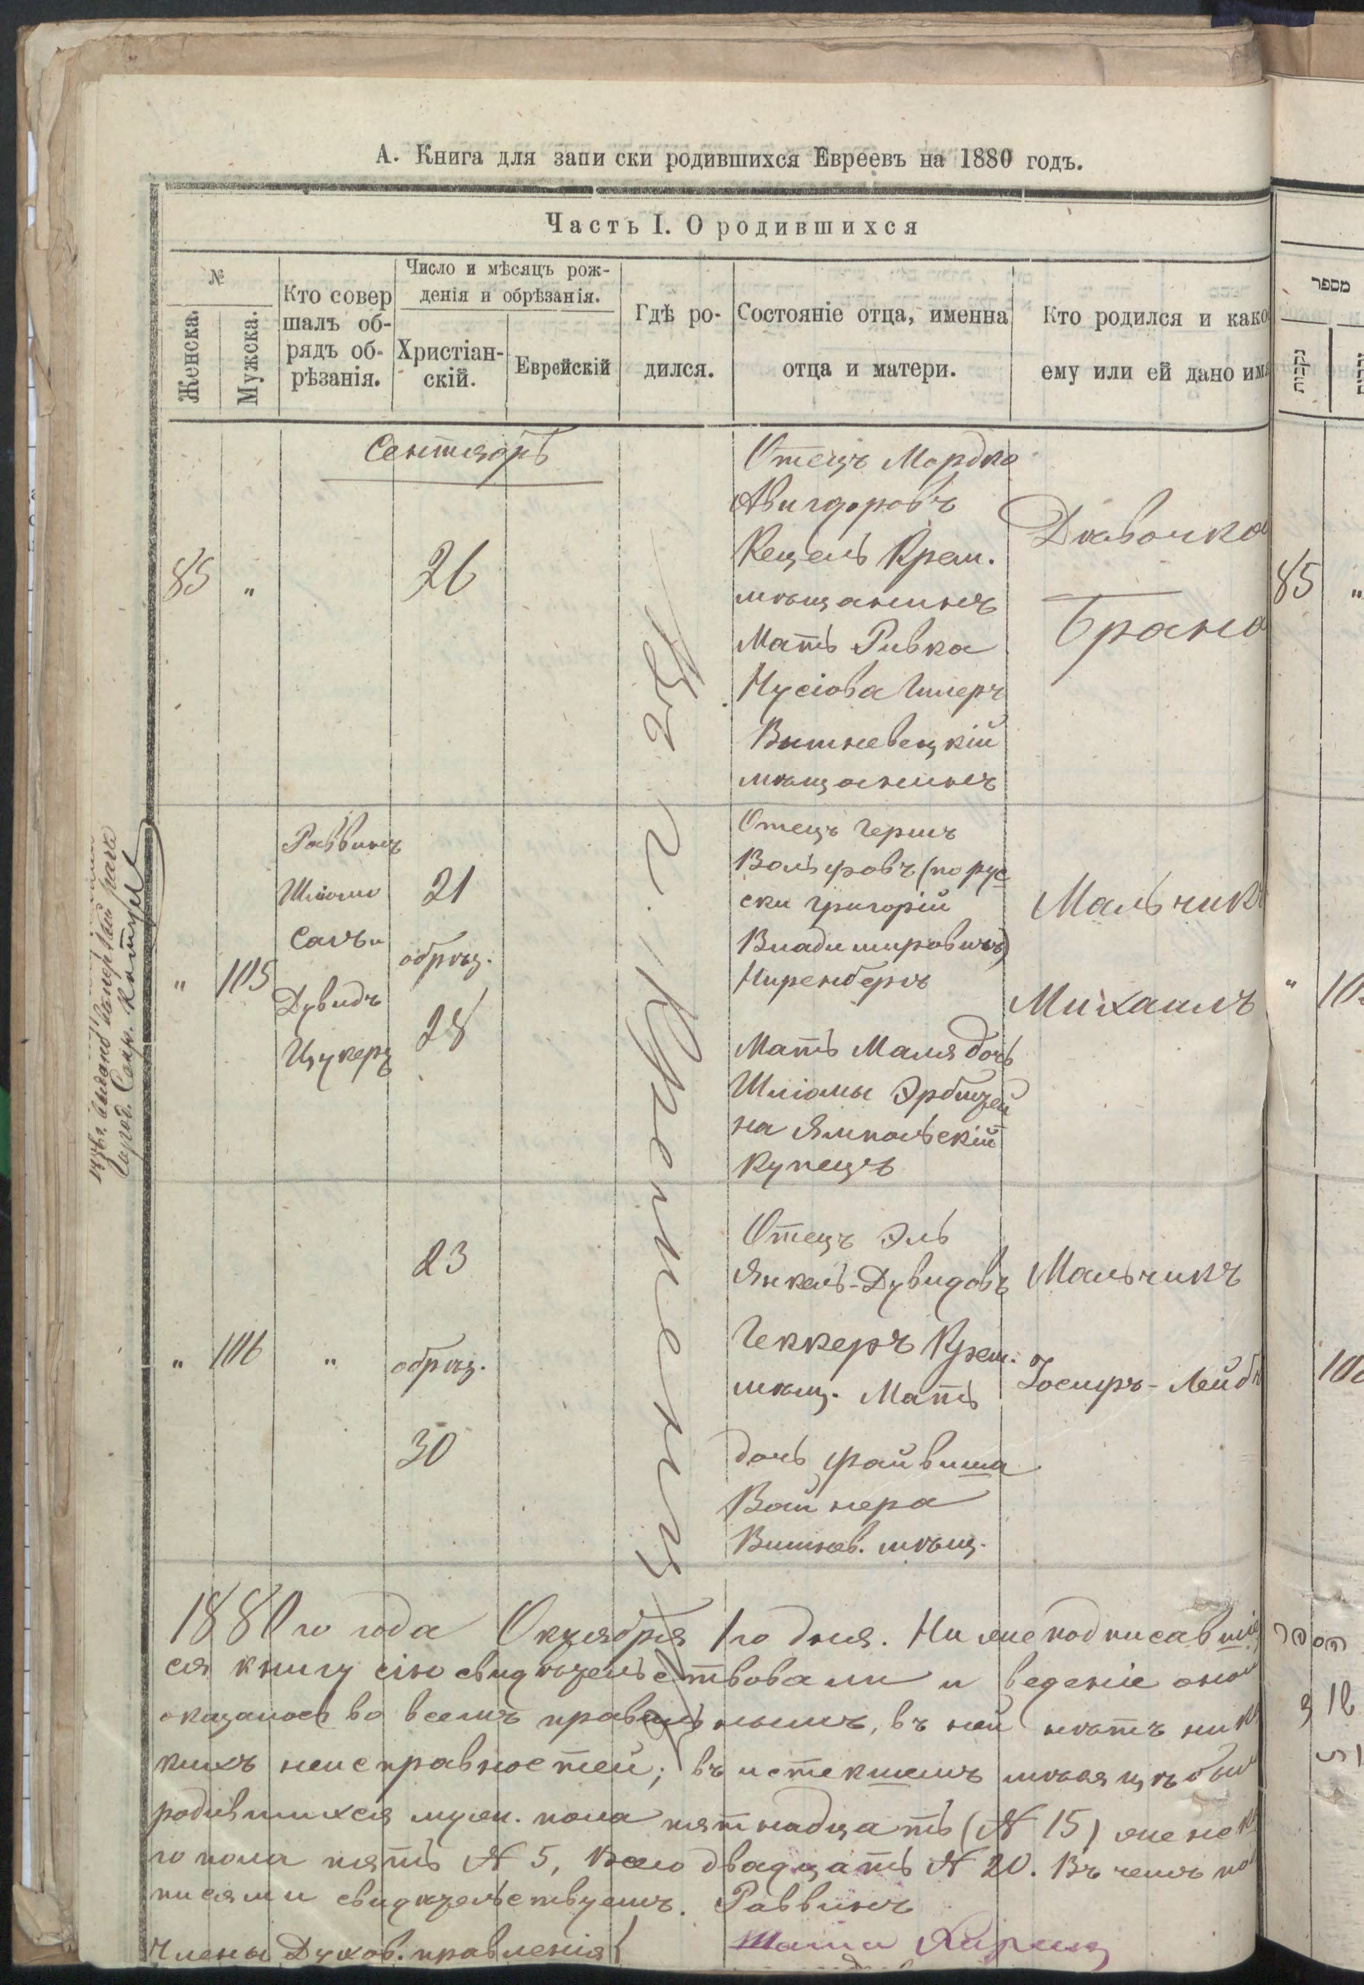 А. Книга для запи ски родившихся Евреевъ на 1880 годъ.
Часть I. О родившихся
№
Женска.
Мужска.
Кто совер
шалъ об-
рядъ об-
рѣзанія.
Число и мѣсяцъ рож-
денія и обрѣзанія.
Христіан-
скій.
Еврейскій
Гдѣ ро-
дился.
Состояніе отца, именна
отца и матери.
Кто родился и како
ему или ей дано имя
מספר
נקבות
Сентябрь
85 "
26
Въ г. Кременцѣ
Отецъ Мордко
Авигдоровъ
Кецель Крем.
мѣщанинъ
Мать Ривка
Нусіова
Вишневецкій
мѣщанинъ
Дѣвочка
Брана
85 "
" 105
Раввинъ
Шліомо
Дувидъ
Цукеръ
21
обрѣз.
28
Отецъ Гершъ
Вольфовъ (по рус
ски Григорій
Владимировичъ)
Ниренбергъ
Мать Маля дочь
Шліомы
на Ямпольскій
купецъ
Мальчикъ
Михаилъ
" 10
" 106 "
23
обрѣз.
30
Отецъ Эль
Янкель-Дувидовъ
Геккеръ Крем.
мѣщ. Мать
дочь Файвиша
Вайнера
Вишнев. мѣщ.
Мальчикъ
Іосифъ-Лейбъ
10
1880го года Октября 1го дня. Ни жеподписавшіе
ся книгу сію свидѣтельствовали и веденіе оной
оказалось во всемъ правильнымъ, въ ней нѣтъ ника
кихъ неисправностей; въ истекшемъ мѣсяцѣ было
родившихся муж. пола пятнадцать (№ 15) женска
го пола пять № 5, всего двадцать № 20. Въ чемъ под
писями свидѣтельствуемъ. Раввинъ
Члены Духов. правленія